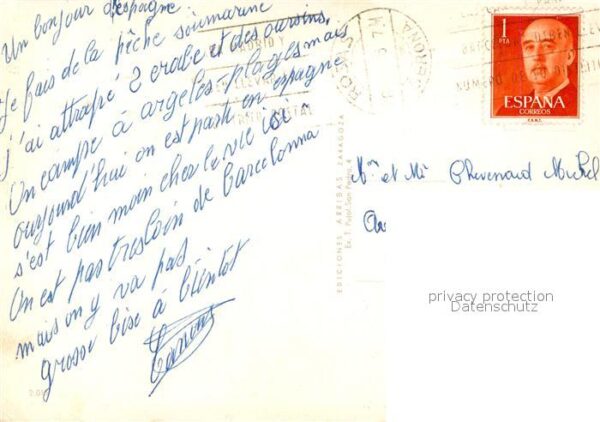 Un bonjour d'espagne
Je fais de la pêche soumarine
j'ai attrapé 2 crabe et des oursins,
On campe à argelès-plages mais
aujourd'hui on est parti en espagne
s'est bien moin cher la vie ici
On est pas tres loin de barcelonna
mais on y va pas
grosse bise à bientot
1
PTA
ESPAÑA
CORREOS
F.N.M.T.
GERONA
NUMERO
EDICIONES ARRIBAS ZARAGOZA
Mr et Me Chevenaud Michel
privacy protection
Datenschutz